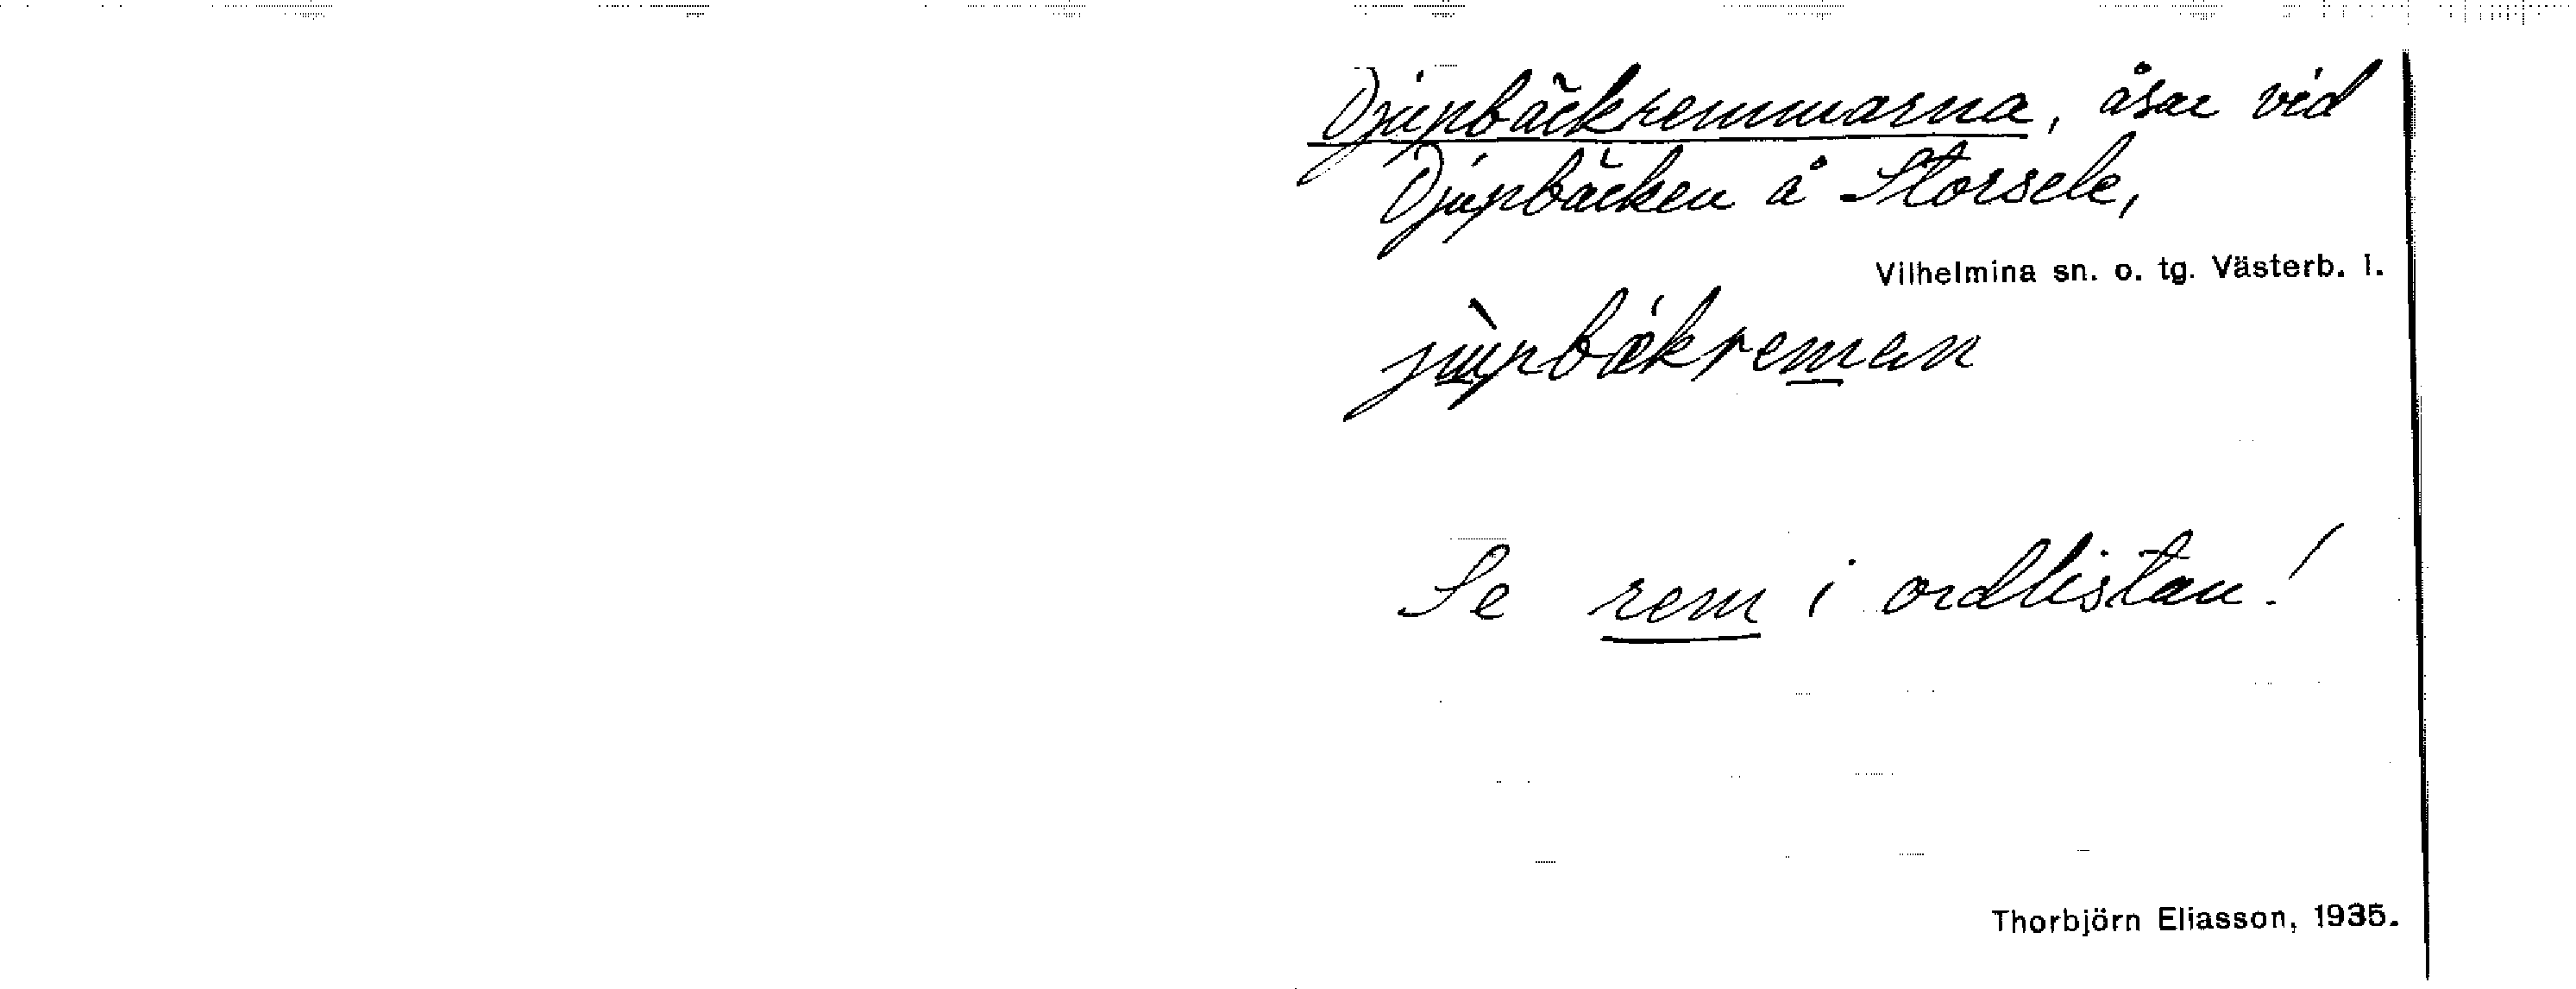 Djupbäckremmarna, åsar vid
Djupbäcken å Storsele,
Vilhelmina sn. o. tg. Västerb. l.
jùpbækreman
Se rem i ordlistan!
Thorbjörn Eliasson, 1935.